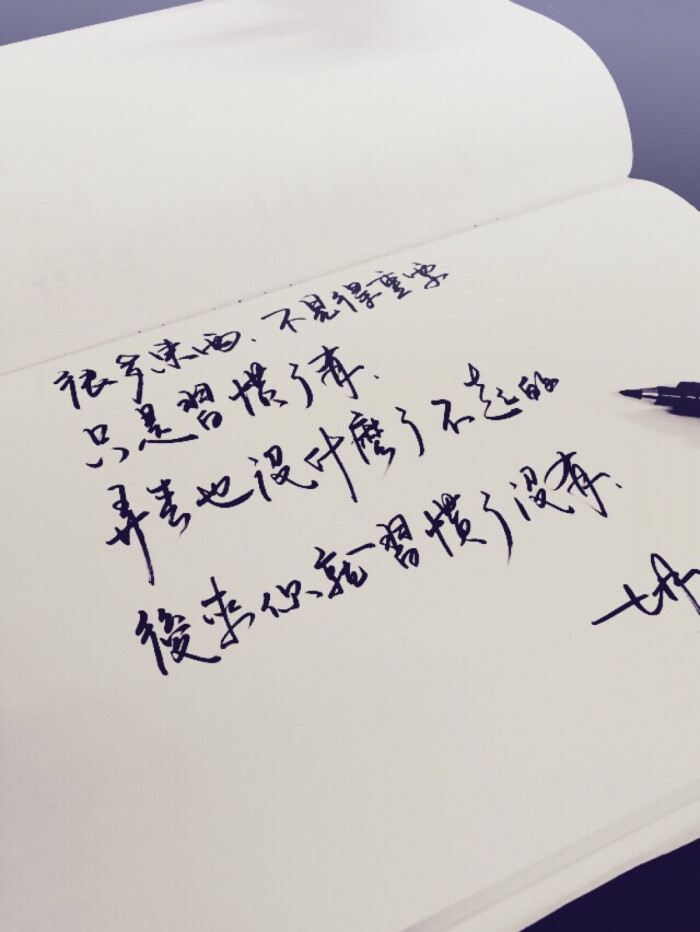 很多東西、不見得重要
只是習慣了有、
弄丟也沒什麼了不起的
後來你就習慣了沒有、